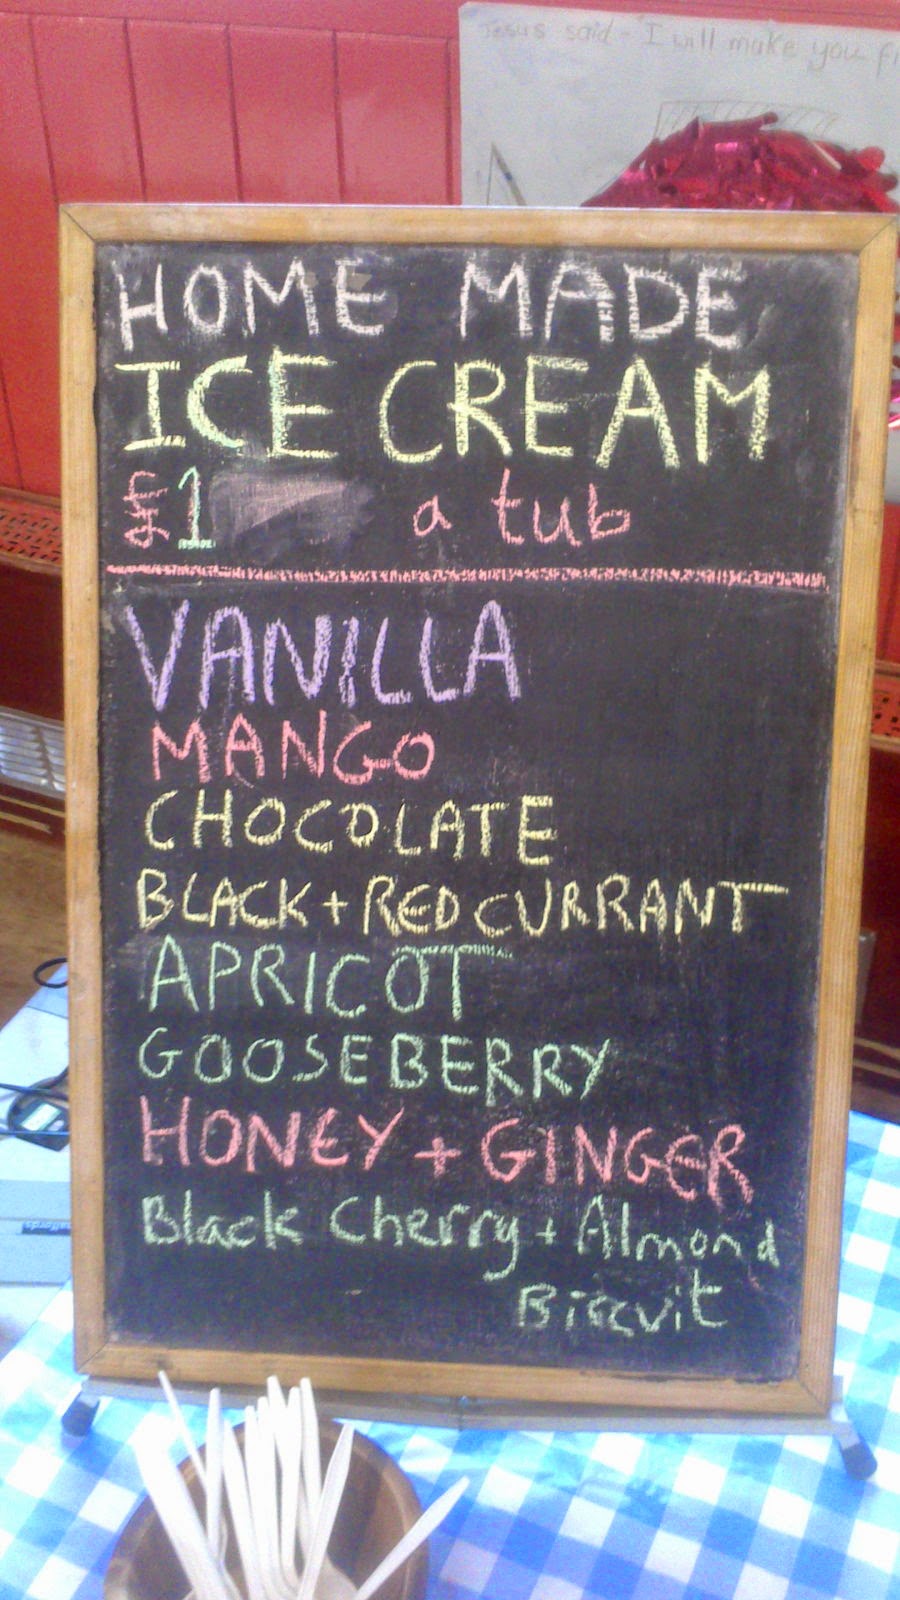 Jesus said - I will make you
HOME MADE
ICE CREAM
£1 a tub
VANILLA
MANGO
CHOCOLATE
BLACK + REDCURRANT
APRICOT
GOOSEBERRY
HONEY + GINGER
Black Cherry + Almond
Biscuit